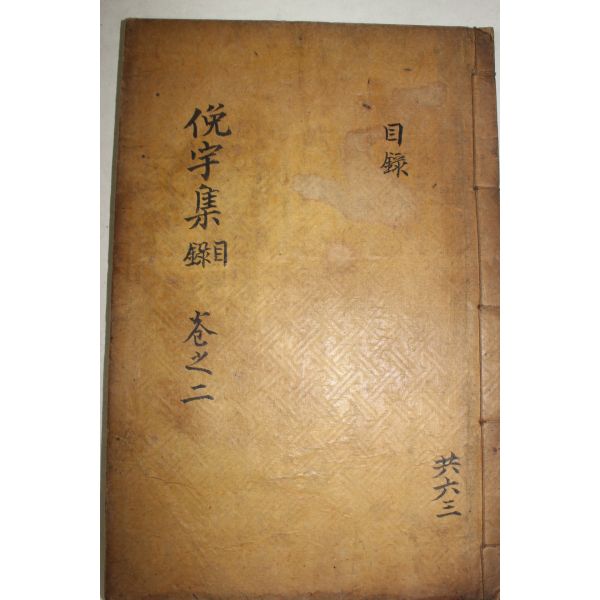 目錄
俛宇集 目錄 卷之二
共六三